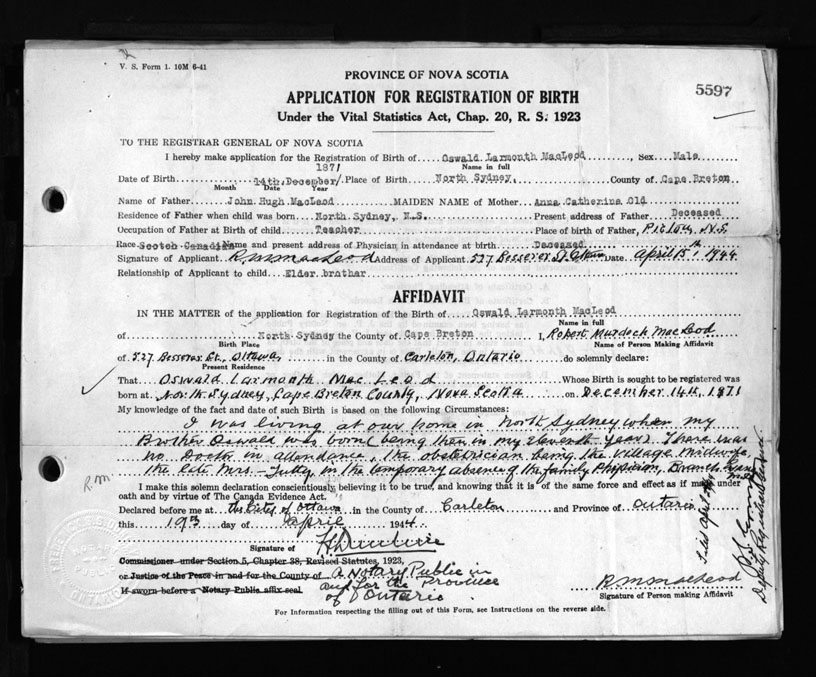 V. S. Form 1. 10M 6-41
5597
PROVINCE OF NOVA SCOTIA
APPLICATION FOR REGISTRATION OF BIRTH
Under the Vital Statistics Act, Chap. 20, R. S. 1923
TO THE REGISTRAR GENERAL OF NOVA SCOTIA
I hereby make application for the Registration of Birth of Oswald Larmonth MacLeod, Sex Male
Name in full
1871
Date of Birth 14th December/ Place of Birth North Sydney, County of Cape Breton
Month Date Year
Name of Father John Hugh MacLeod MAIDEN NAME of Mother Anna Catherine Old
Residence of Father when child was born North Sydney, N.S. Present address of Father Deceased
Occupation of Father at Birth of child Teacher Place of birth of Father, Pictou, N.S.
Race Scotch Canadian Name and present address of Physician in attendance at birth Deceased
Signature of Applicant R M MacLeod Address of Applicant 527 Besserer St Date April 15th, 1944
Relationship of Applicant to child Elder brother
AFFIDAVIT
IN THE MATTER of the application for Registration of the Birth of Oswald Larmonth MacLeod
Name in full
of North Sydney the County of Cape Breton I, Robert Murdoch MacLeod
Birth Place Name of Person Making Affidavit
of 527 Besserer St., Ottawa in the County of Carleton, Ontario do solemnly declare:
Present Residence
That Oswald Larmonth MacLeod Whose Birth is sought to be registered was
born at North Sydney, Cape Breton County, Nova Scotia on December 14th, 1871
My knowledge of the fact and date of such Birth is based on the following Circumstances:
I was living at our home in North Sydney when my
Brother Oswald was born (being then in my eleventh year). There was
no Doctor in attendance, the obstetrician being the village midwife,
the late Mrs. in the temporary absence of the family Physician,
R M
I make this solemn declaration conscientiously, believing it to be true, and knowing that it is of the same force and effect as if made under
oath and by virtue of The Canada Evidence Act.
Declared before me at the City of Ottawa in the County of Carleton and Province of Ontario
this 19th day of April 1944.
Signature of
Commissioner under Section 5, Chapter 38, Revised Statutes, 1923,
or Justice of the Peace in and for the County of a Notary Public in
If sworn before a Notary Public affix seal and for the Province
of Ontario
R M MacLeod
Signature of Person making Affidavit
For Information respecting the filling out of this Form, see Instructions on the reverse side.